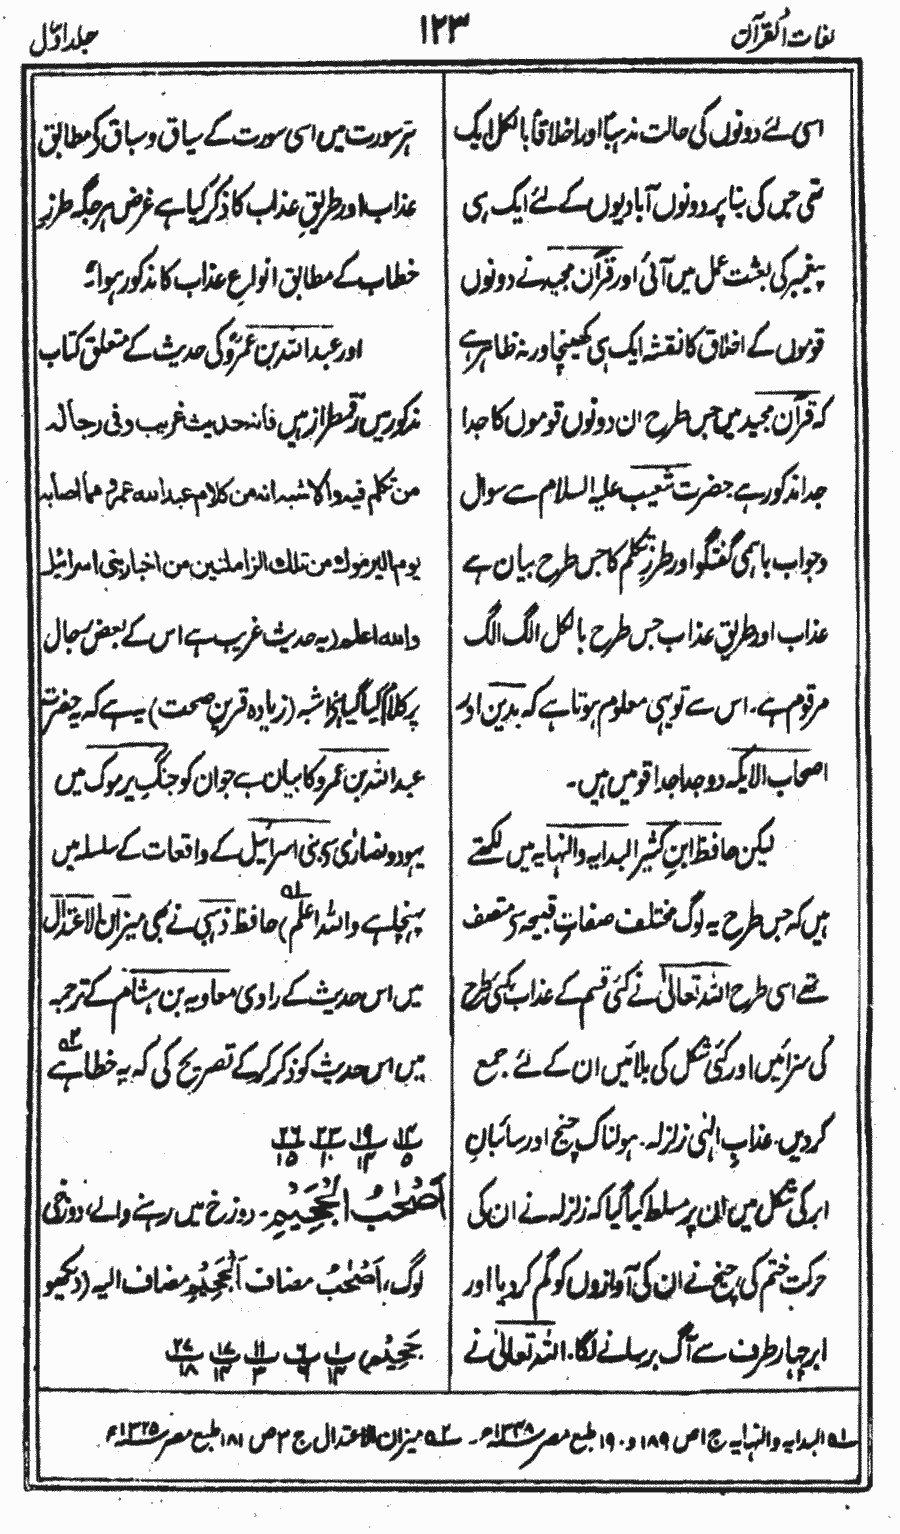 لغات القرآن
۱۲۳
جلد اوّل
اسی لئے دونوں کی حالت مذہباً اور اخلاقاً بالکل ایک
تھی جس کی بنا پر دونوں آبادیوں کے لئے ایک ہی
پیغمبر کی بعثت عمل میں آئی اور قرآن مجید نے دونوں
قوموں کے اخلاق کا نقشہ ایک ہی کھینچا اور نہ ظاہر ہے
کہ قرآن مجید میں جس طرح ان دونوں قوموں کا جدا
جدا مذکور ہے حضرت شعیب علیہ السلام سے سوال
وجواب باہمی گفتگو اور طرزِ تکلم کا جس طرح بیان ہے
عذاب اور طریقِ عذاب جس طرح بالکل الگ الگ
مرقوم ہے۔ اس سے تو یہی معلوم ہوتا ہے کہ مدین اور
اصحاب الایکہ دو جدا جدا قومیں ہیں۔
لیکن حافظ ابن کثیر البدایہ والنہایہ میں لکھتے
ہیں کہ جس طرح یہ لوگ مختلف صفاتِ قبیحہ سے متصف
تھے اسی طرح اللہ تعالیٰ نے کئی قسم کے عذاب کئی طرح
کی سزائیں اور کئی شکل کی بلائیں ان کے لئے جمع
کردیں۔ عذابِ الٰہی زلزلہ۔ ہولناک چیخ اور سائبانِ
ابر کی شکل میں ان پر مسلط کیا گیا کہ زلزلہ نے ان کی
حرکت ختم کی، چیخ نے ان کی آوازوں کو گم کر دیا اور
ابر چہار طرف سے آگ برسانے لگا۔ اللہ تعالیٰ نے
ہر سورت میں اسی سورت کے سیاق و سباق کے مطابق
عذاب اور طریقِ عذاب کا ذکر کیا ہے غرض ہر جگہ طرزِ
خطاب کے مطابق انواعِ عذاب کا مذکور ہوا ہے۔
اور عبداللہ بن عمرو کی حدیث کے متعلق کتاب
مذکور میں رقمطراز ہیں فانه حدیث غریب وفی رجاله
من تکلم فیه والاشبه انه من کلام عبدالله عمرو مما اصابه
یوم الیرموك من تلك الزاملتین من اخبار بنی اسرائیل
والله اعلم (یہ حدیث غریب ہے اس کے بعض رجال
پر کلام کیا گیا ہے اشبہ (زیادہ قرینِ صحت) یہ ہے کہ یہ حضرت
عبداللہ بن عمرو کا بیان ہے جو ان کو جنگِ یرموک میں
یہود و نصاریٰ سے بنی اسرائیل کے واقعات کے سلسلہ میں
پہنچا ہے واللہ اعلم) ۱ھ حافظ ذہبی نے بھی میزان الاعتدال
میں اس حدیث کے راوی معاویہ بن ہشام کے ترجمہ
میں اس حدیث کو ذکر کر کے تصریح کی کہ یہ خطا ہے ۲ھ
اَصْحٰبُ الْجَحِیْمِ۔ دوزخ میں رہنے والے، دوزخی
لوگ، اَصْحٰبُ مضاف اَلْجَحِیْمِ مضاف الیہ (دیکھو
جَحِیْم)
۱ھ البدایہ والنہایہ ج ۱ ص ۱۸۹ و ۱۹۰ طبع مصر ۱۳۴۸ھ۔ ۲ھ میزان الاعتدال ج ۳ ص ۱۸۱ طبع مصر ۱۳۲۵ھ